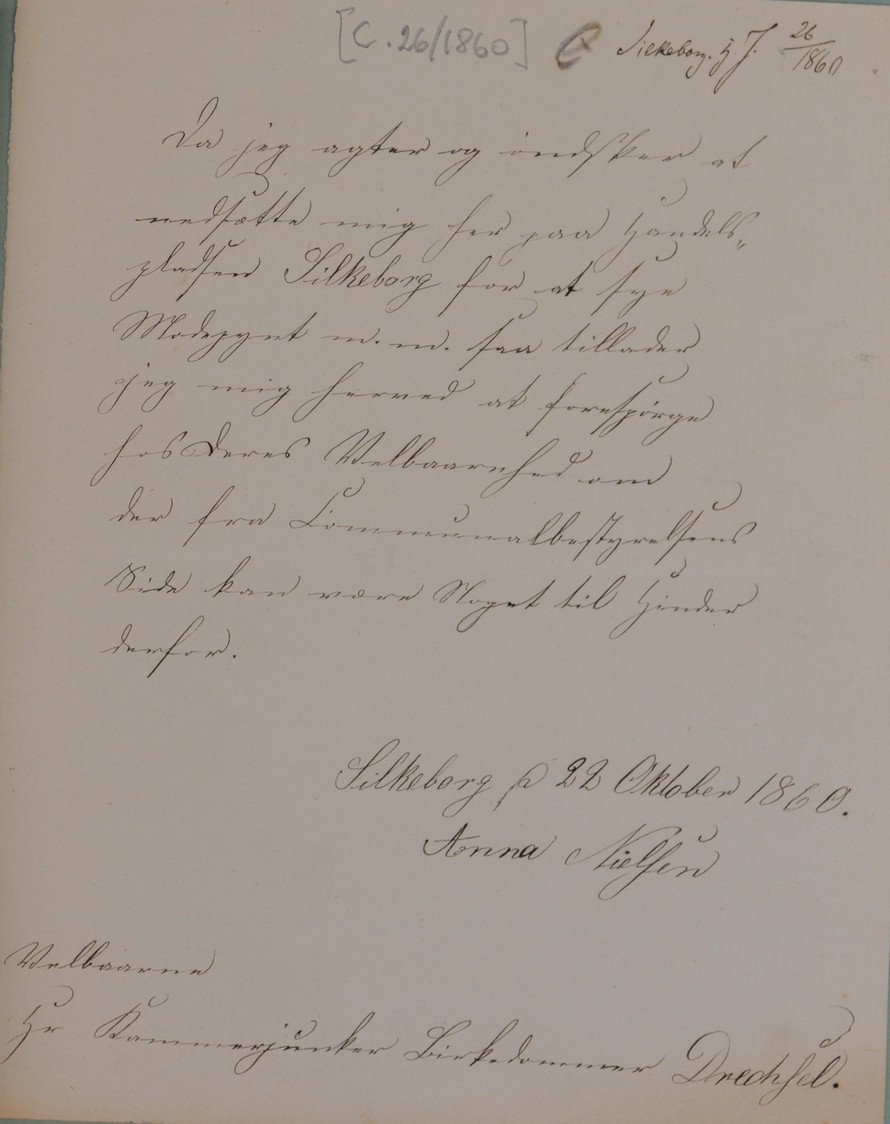 [C. 26/1860]
Silkeborg. H. J. 26/1860
Da jeg agter og öndsker at
nedsætte mig her paa Handels„
pladsen Silkeborg for at sye
Modepynt m. m. saa tillader
jeg mig herved at forespörge
hos Deres Velbaarenhed om
der fra Communalbestyrelsens
Side kan være Noget til Hinder
derfor.
Silkeborg d 22 Oktober 1860.
Anna Nielsen
Velbaarne
Hr Kammerjunker Birkedommer Drechsel.